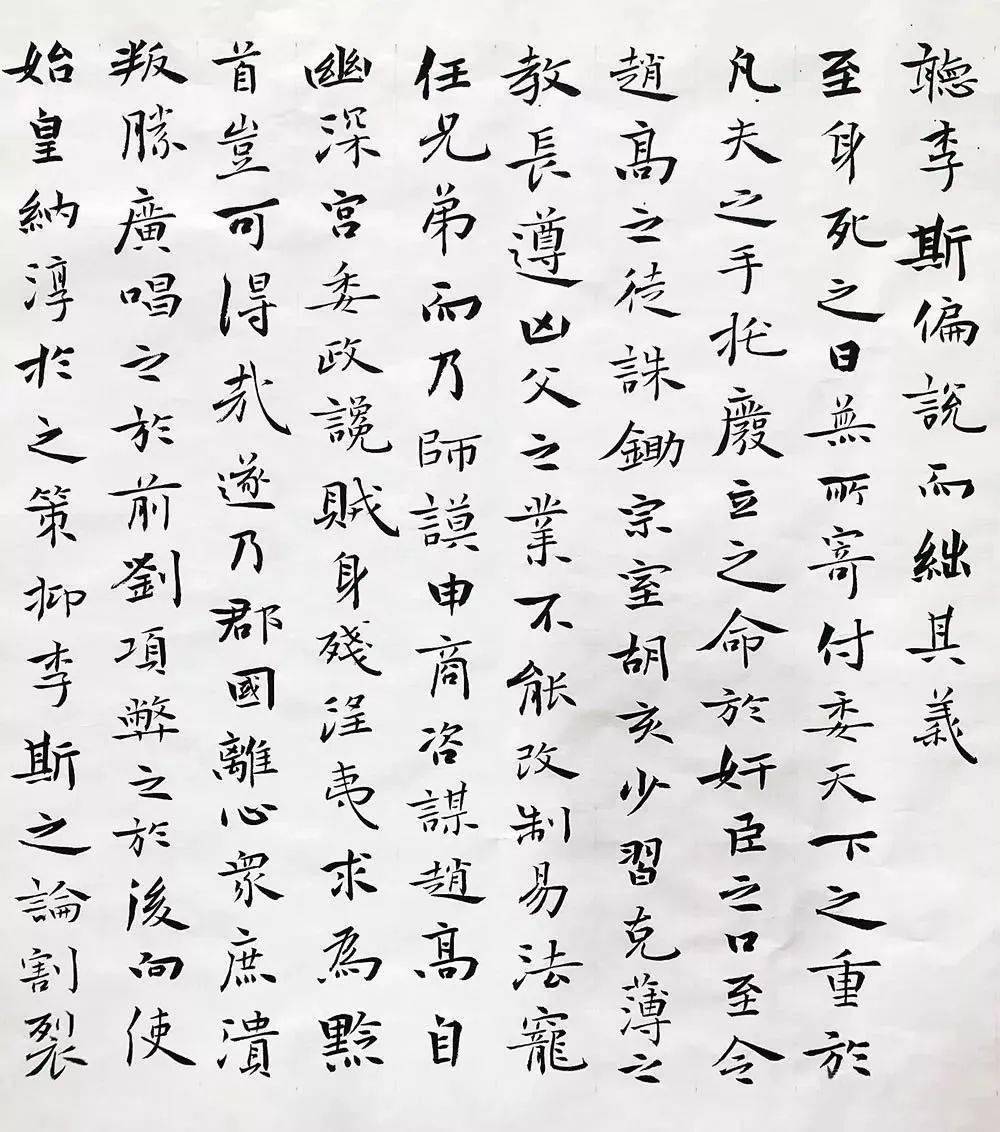 聽李斯偏說而絀其義
至身死之日無所寄付委天下之重於
凡夫之手托廢立之命於奸臣之口至令
趙高之徒誅鋤宗室胡亥少習克薄之
教長遵凶父之業不能改制易法寵
任兄弟而乃師謨申商咨謀趙高自
幽深宮委政讒賊身殘淫夷求為黔
首豈可得哉遂乃郡國離心眾庶潰
叛勝廣唱之於前劉項弊之於後向使
始皇納淳於之策抑李斯之論割裂